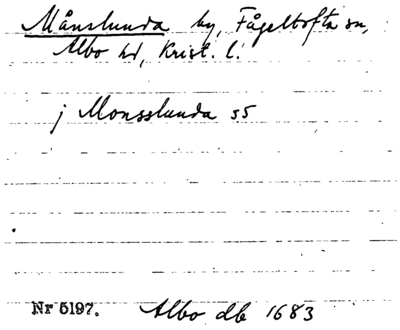 Månslunda by, Fågeltofta sn,
Albo hd, Krist. l.
j Monsslunda s5
Nr 5197. Albo db 1683